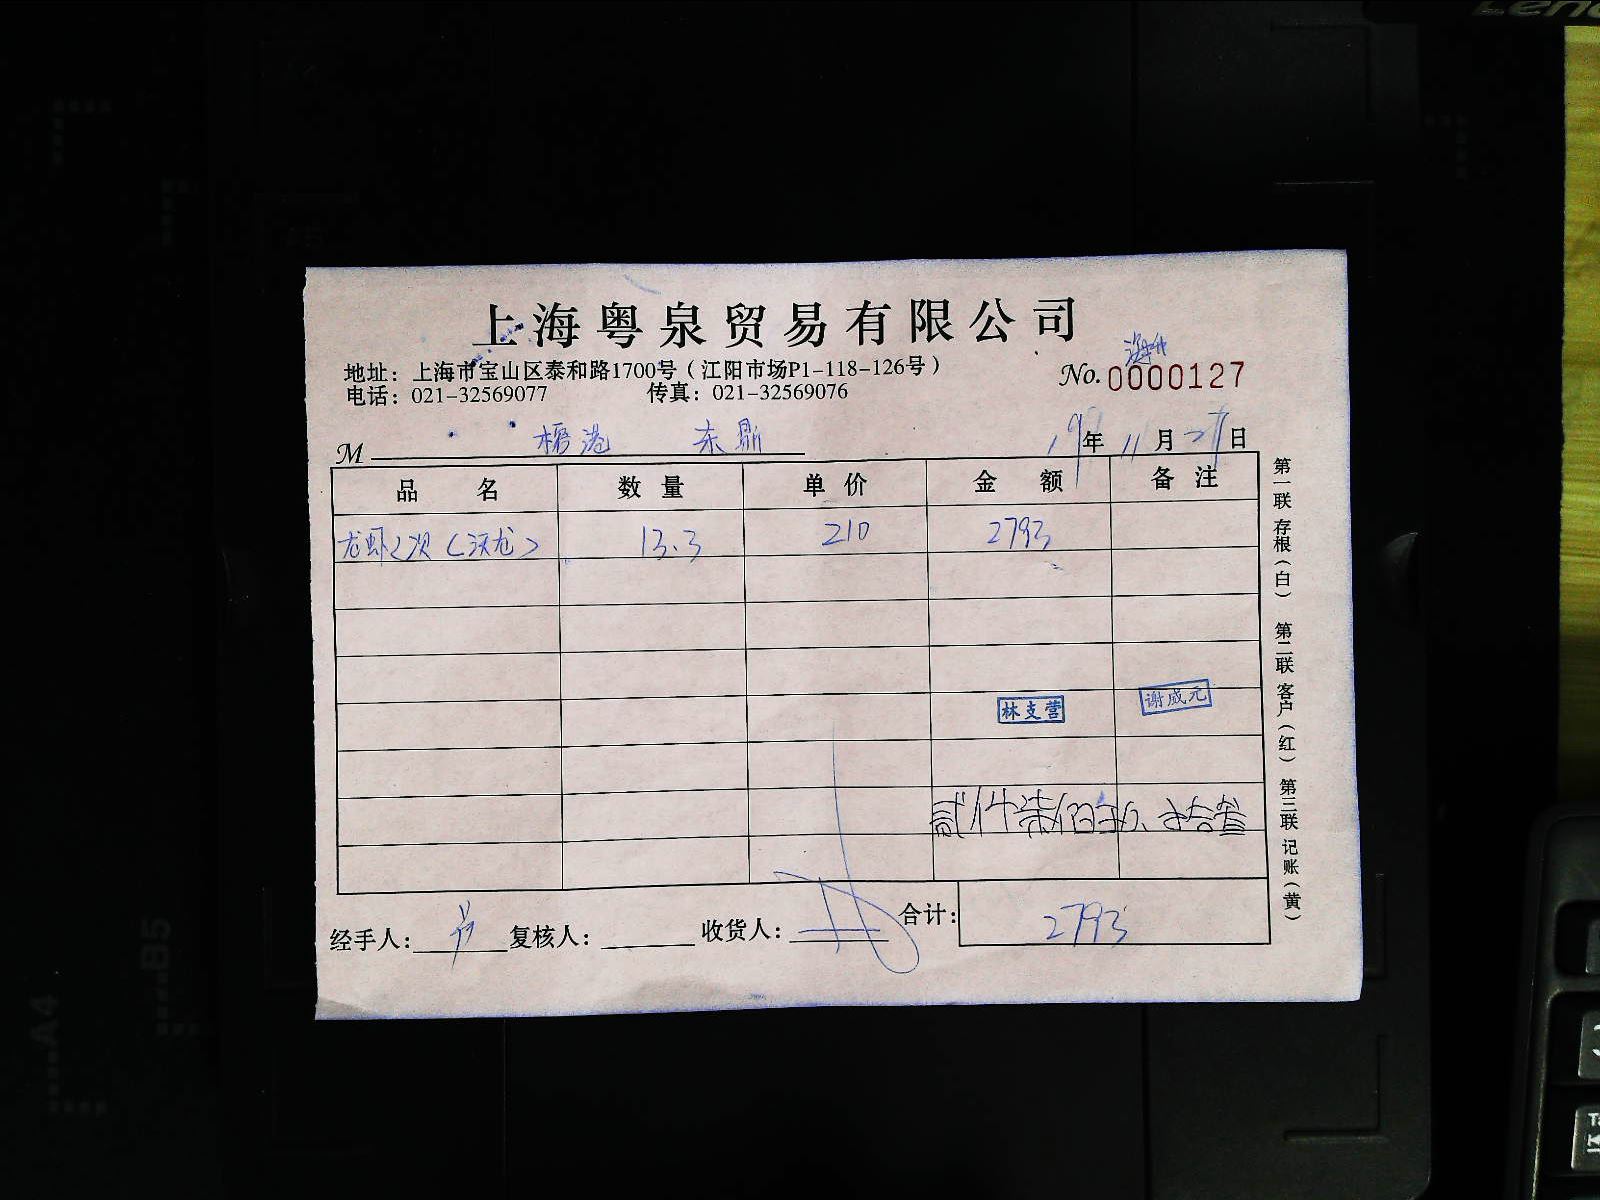 上海粤泉贸易有限公司
地址：上海市宝山区泰和路1700号（江阳市场P1-118-126号）
电话：021-32569077 传真：021-32569076
No. 0000127
M 东鼎
19年 11月 27日
品名 数量 单价 金额 备注
龙虾 13.3 210 2793
林支营 谢盛元
贰仟柒佰玖拾叁
经手人： 复核人： 收货人： 合计： 2793
第一联 存根（白） 第二联 客户（红） 第三联 记账（黄）
Leno
A4
B5